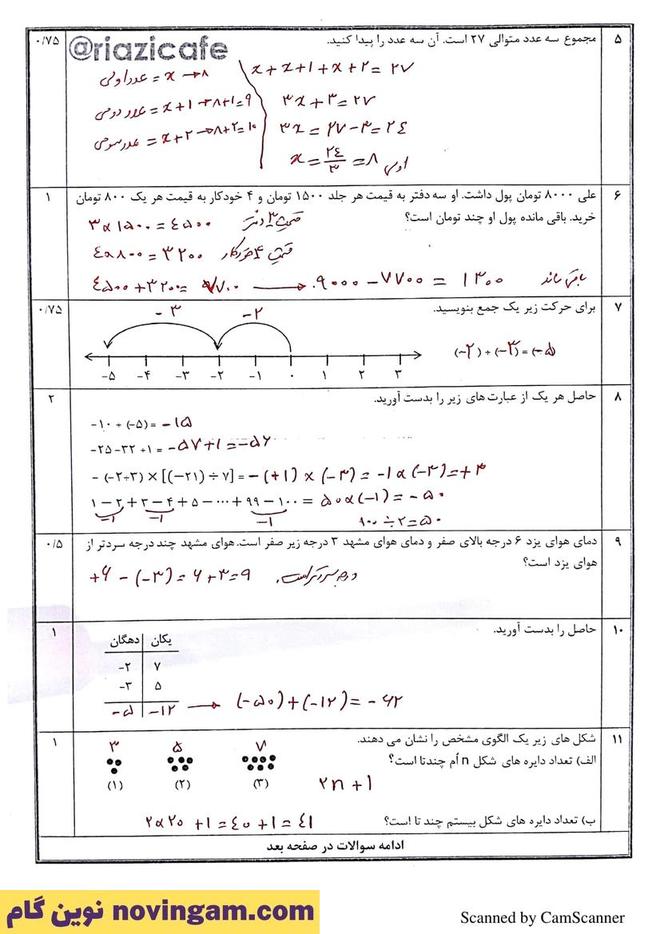 @riazicafe
۵ مجموع سه عدد متوالی ۲۷ است. آن سه عدد را پیدا کنید. ۰/۷۵
x + x+1 + x+2 = ۲۷
۳x + ۳ = ۲۷
۳x = ۲۷ - ۳ = ۲٤
x = ۲٤/۳ = ۸ اولی
عدد اولی = x → ۸
عدد دومی = x+1 → ۸+1 = ۹
عدد سومی = x+۲ → ۸+۲ = ۱۰
۶ علی ۸۰۰۰ تومان پول داشت. او سه دفتر به قیمت هر جلد ۱۵۰۰ تومان و ۴ خودکار به قیمت هر یک ۸۰۰ تومان ۱
خرید. باقی مانده پول او چند تومان است؟
۳ × ۱۵۰۰ = ٤۵۰۰ قیمت ۳ دفتر
٤×۸۰۰ = ۳۲۰۰ قیمت ۴ خودکار
٤۵۰۰ + ۳۲۰۰ = ۷۷۰۰ → ۹۰۰۰ - ۷۷۰۰ = ۱۳۰۰ باقی ماند
۷ برای حرکت زیر یک جمع بنویسید. ۰/۷۵
-۳ -۲
-۵ -۴ -۳ -۲ -۱ ۰ ۱ ۲ ۳
(-۲) + (-۳) = (-۵)
۸ حاصل هر یک از عبارت های زیر را بدست آورید. ۲
-۱۰ + (-۵) = -۱۵
-۲۵-۳۲+۱ = -۵۷+۱ = -۵۶
- (-۲+۳) × [(-۲۱) ÷ ۷] = -(+۱) × (-۳) = -۱ × (-۳) = +۳
۱ - ۲ + ۳ - ۴ + ۵ - ... + ۹۹ - ۱۰۰ = ۵۰×(-۱) = -۵۰
-۱ -۱ -۱ ۱۰۰ ÷ ۲ = ۵۰
۹ دمای هوای یزد ۶ درجه بالای صفر و دمای هوای مشهد ۳ درجه زیر صفر است. هوای مشهد چند درجه سردتر از ۰/۵
هوای یزد است؟
+۶ - (-۳) = ۶+۳ = ۹ درجه سردتر است.
۱۰ حاصل را بدست آورید. ۱
دهگان یکان
-۲ ۷
-۳ ۵
-۵ -۱۲ → (-۵۰) + (-۱۲) = -۶۲
۱۱ شکل های زیر یک الگوی مشخص را نشان می دهند. ۱
۳ ۵ ۷
الف) تعداد دایره های شکل n اُم چندتا است؟
(۱) (۲) (۳) ۲n + ۱
ب) تعداد دایره های شکل بیستم چند تا است؟ ۲×۲۰ + ۱ = ٤۰ + ۱ = ٤۱
ادامه سوالات در صفحه بعد
novingam.com نوین گام
Scanned by CamScanner